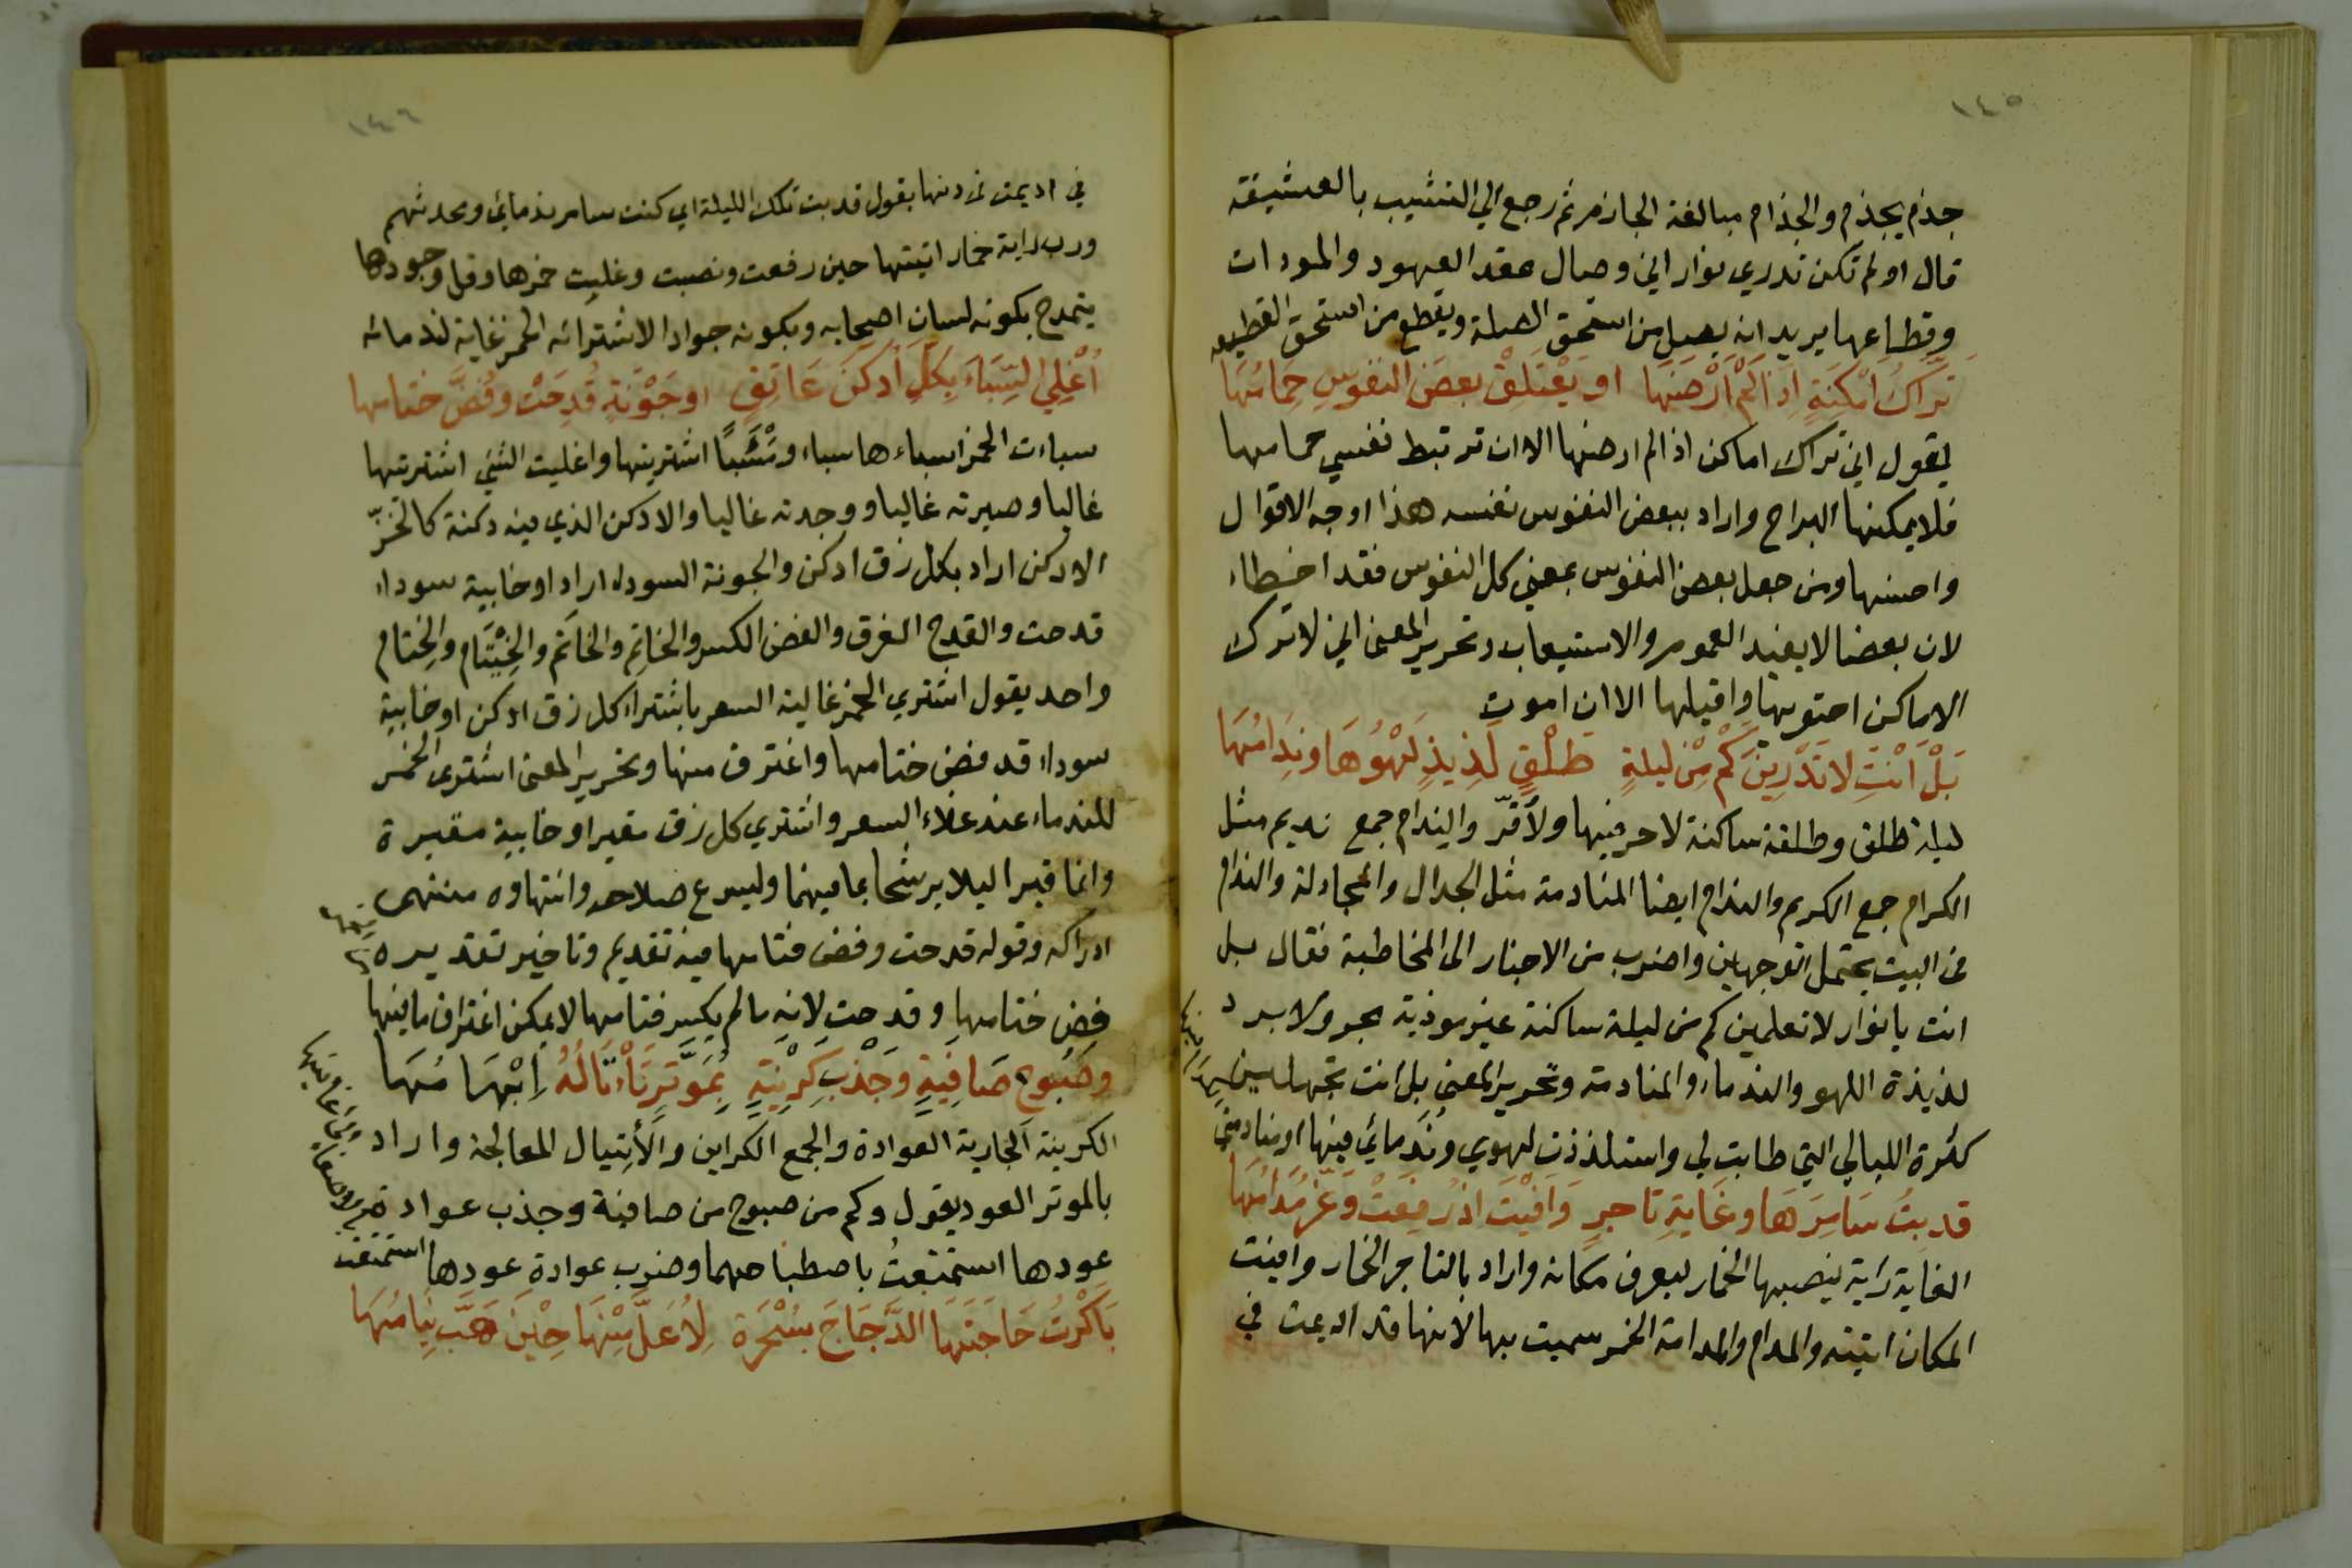 ١٤٥
جذم يجذم والجذام مبالغة الجازم ثم رجع الي التشبيب بالعشيقة
قال او لم تكن تدري نوار اني وصال عقد العهود والمودات
وقطاعها يريد انه يصل من استحق الصلة ويقطع من استحق القطيعه
تَرَّاكُ اَمْكِنَةٍ اِذَا لَمْ اَرْضَهَا او يَعْتَلِقْ بعضَ النفوسِ حِمَامُهَا
يقول اني تراك اماكن اذا لم ارضها الا ان ترتبط نفسي حمامها
فلا يمكنها البراح واراد ببعض النفوس نفسه هذا اوجه الاقوال
واحسنها ومن جعل بعض النفوس بمعني كل النفوس فقد اخطاء
لان بعضا لا يفيد العموم والاستيعاب وتحرير المعنى اني لا ترك
الاماكن احتويتها واقيلها الا ان اموت
بَلْ اَنْتِ لا تَدْرِينَ كَمْ مِنْ ليلةٍ طَلْقٍ لَذِيذٍ لَهْوُهَا ونِدَامُهَا
ليلة طلق وطلقة ساكنة لا حر فيها ولا قرّ والندام جمع نديم مثل
الكرام جمع الكريم والندام ايضا المنادمة مثل الجدال والمجادلة والندام
فى البيت يحتمل الوجهين واضرب من الاخبار الى المخاطبة فقال بل
انت يا نوار لا تعلمين كم من ليلة ساكنة غير موذية بحر ولا برد
لذيذة اللهو والندماء والمنادمة وتحرير المعنى بل انت تجهلين
كثرة الليالي التي طابت لي واستلذذت لهوي وندمائي فيها او منادمتي
قد بِتُّ سَامِرَهَا وغَايةِ تاجرٍ وَافَيْتُ اذ رُفِعَتْ وَعَزَّ مُدَامُهَا
الغاية راية ينصبها الخمار ليعرف مكانه واراد بالتاجر الخمار وافيت
المكان اتيته والمدام والمدامة الخمر سميت بها لانها قد اديمت في
١٤٦
في اديمت فى دنها يقول قد بت تلك الليلة اي كنت سامر ندمائي ومحدثهم
ورب راية خمار اتيتها حين رفعت ونصبت وغليت خمرها وقل وجودها
يتمدح بكونه لسان اصحابه وبكونه جوادا لاشترائه الخمر غالية لندمائه
اُغْلِي السِّبَاءَ بِكُلِّ اَدْكَنَ عَاتِقٍ او جَوْنَةٍ قُدِحَتْ وفُضَّ ختامها
سباءت الخمر اسباءها سباء ومَسْبَأً اشتريتها واغليت الشئ اشتريتها
غاليا وصيرته غاليا ووجدته غاليا والادكن الذي فيه دكنة كالخزّ
الادكن اراد بكل زق ادكن والجونة السوداء اراد او خابية سوداء
قدحت والقدح الغرف والفض الكسر والخاتِم والخاتَم والخَيْتَام والخِتام
واحد يقول اشتري الخمر غالية السعر باشتراء كل زق ادكن او خابية
سوداء قد فض ختامها واغترف منها وتحرير المعنى اشترى الخمر
للندماء عند غلاء السعر واشتري كل زق مقير او خابية مقيرة
وانما قيرا ليلا يرشحا بما فيهما وليسرع صلاحه وانتهاوه منتهى
ادراكه وقوله قدحت وفض ختامها فيه تقديم وتاخير تقديره
فض ختامها وقدحت لانه ما لم يكسر ختامها لا يمكن اغتراف ما فيها
وصَبُوحِ صَافِيَةٍ وجَذْبِ كَرِيْنَةٍ بِمُوَتَّرٍ تَأْتَالُهُ اِبْهَامُهَا
الكرينة الجارية العوادة والجمع الكراين والأتِيال المعالجة واراد
بالموتر العود يقول وكم من صبوح من صافية وجذب عوادة
عودها استمتعتُ باصطباحهما وضرب عوادة عودها استمتعت
بَاكَرْتُ حَاجَتَهَا الدَّجَاجَ بِسُحْرَة لِاُعَلَّ مِنْهَا حِيْنَ هَبَّ نِيَامُهَا